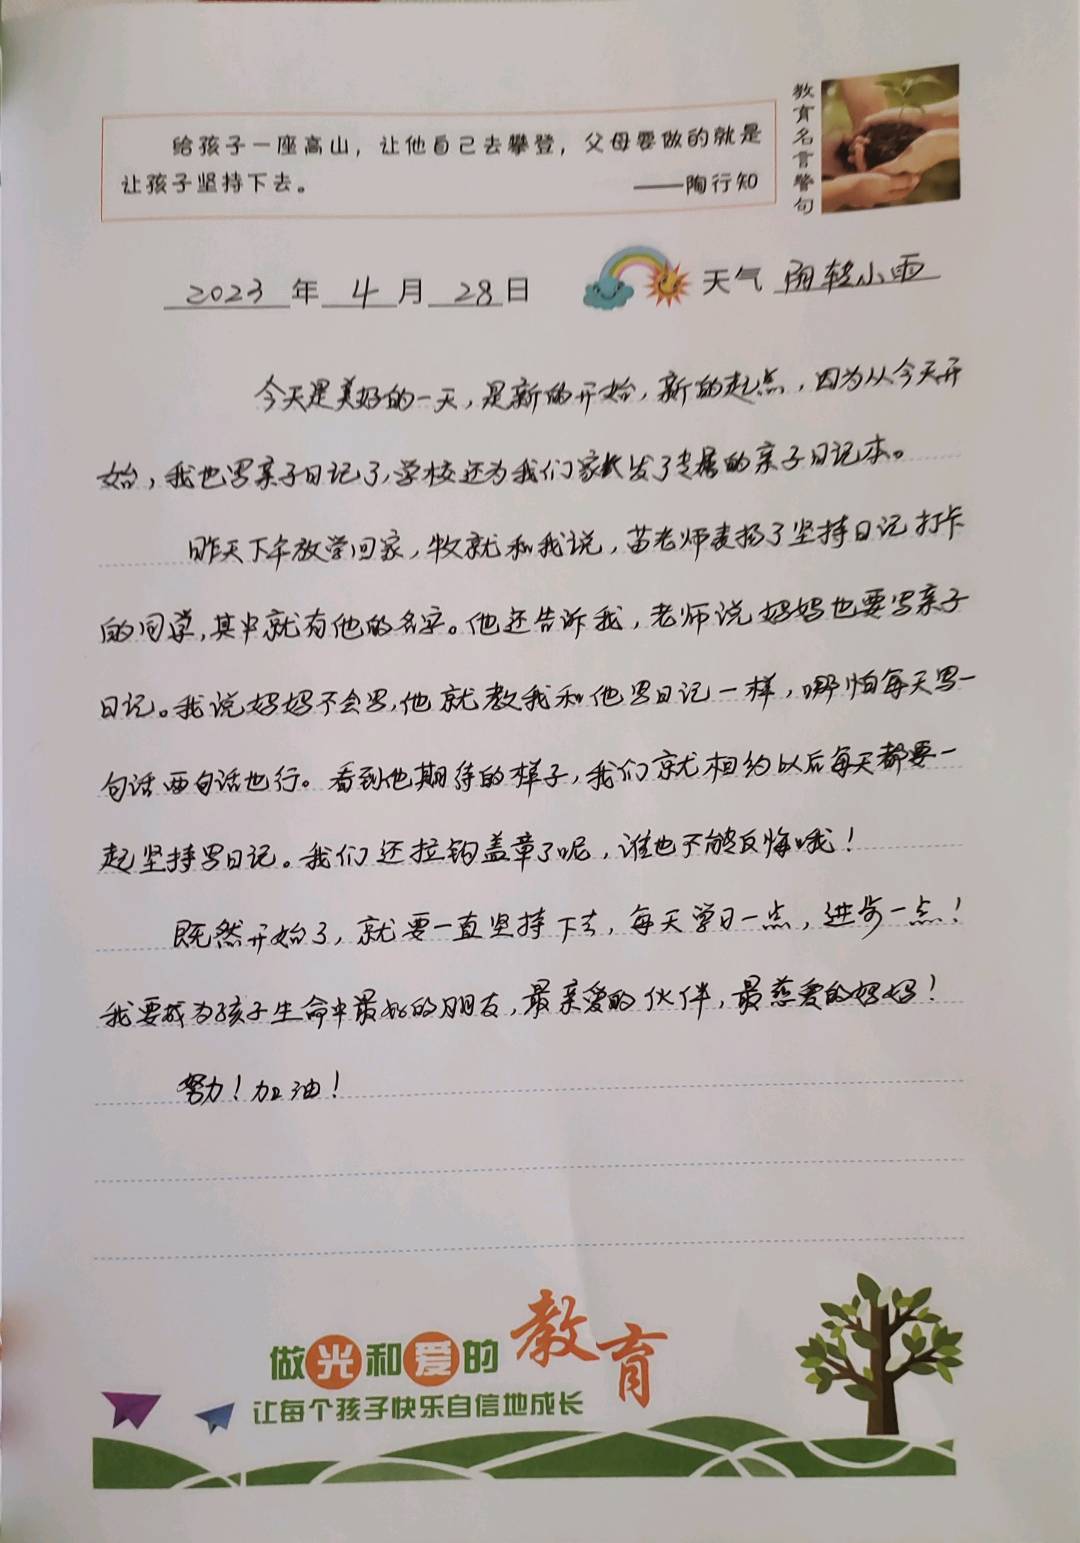 教育名言警句
给孩子一座高山，让他自己去攀登，父母要做的就是
让孩子坚持下去。
——陶行知
2023年4月28日 天气 阴转小雨
今天是美好的一天，是新的开始，新的起点，因为从今天开
始，我也写亲子日记了，学校还为我们家长发了专属的亲子日记本。
昨天下午放学回家，牧就和我说，苗老师表扬了坚持日记打卡
的同学，其中就有他的名字。他还告诉我，老师说妈妈也要写亲子
日记。我说妈妈不会写，他就教我和他写日记一样，哪怕每天写一
句话两句话也行。看到他期待的样子，我们就相约以后每天都要一
起坚持写日记。我们还拉钩盖章了呢，谁也不能反悔哦！
既然开始了，就要一直坚持下去，每天学习一点，进步一点！
我要成为孩子生命中最好的朋友，最亲爱的伙伴，最慈爱的妈妈！
努力！加油！
做光和爱的教育
让每个孩子快乐自信地成长